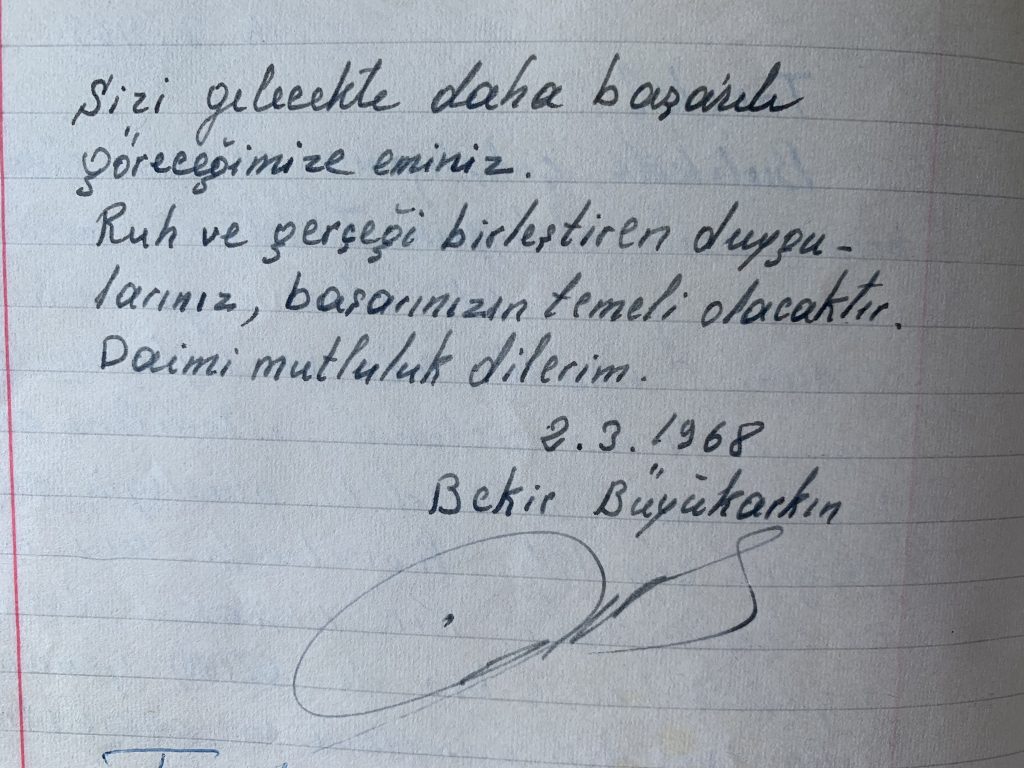 Sizi gelecekte daha başarılı
göreceğimize eminiz.
Ruh ve gerçeği birleştiren duygu-
larınız, başarınızın temeli olacaktır.
Daimi mutluluk dilerim.
2.3.1968
Bekir Büyükarkın